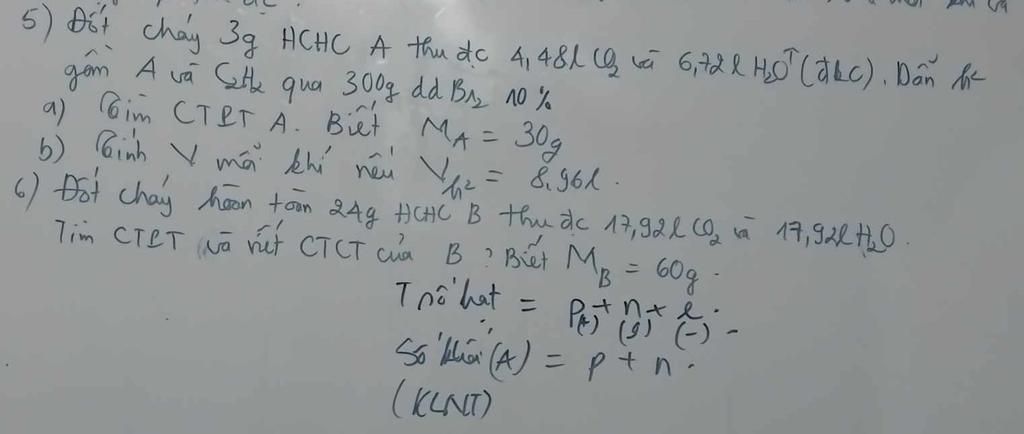 5) Đốt cháy 3g HCHC A thu đc 4,48l CO2 và 6,72l H2O↑ (đkc). Dẫn h²
gồm A và C2H2 qua 300g dd Br2 10%
a) Tìm CTPT A. Biết MA = 30g
b) Tính V mỗi khí nếu Vh² = 8,96l.
6) Đốt cháy hoàn toàn 24g HCHC B thu đc 17,92l CO2 và 17,92l H2O.
Tìm CTPT và viết CTCT của B? Biết MB = 60g.
T số hạt = P + n + e.
(+) (g) (-)
Số khối (A) = p + n.
(KLNT)